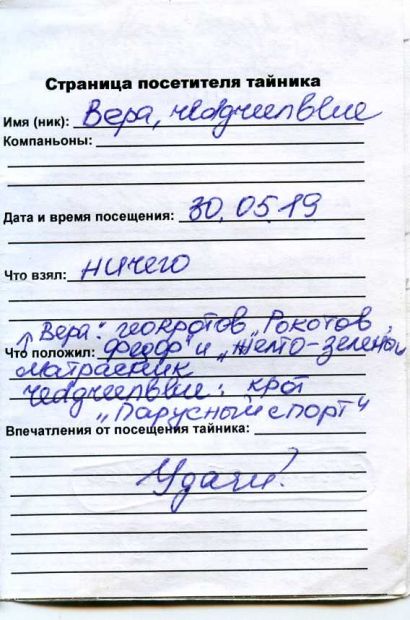 Страница посетителя тайника
Имя (ник): Вера,
Компаньоны:
Дата и время посещения: 30.05.19
Что взял: ничего
↑ Вера: геокротов „Рокотов
Что положил: Федор" и „Желто-зеленый
матрасник"
крот
„Парусный спорт"
Впечатления от посещения тайника:
Удачи!